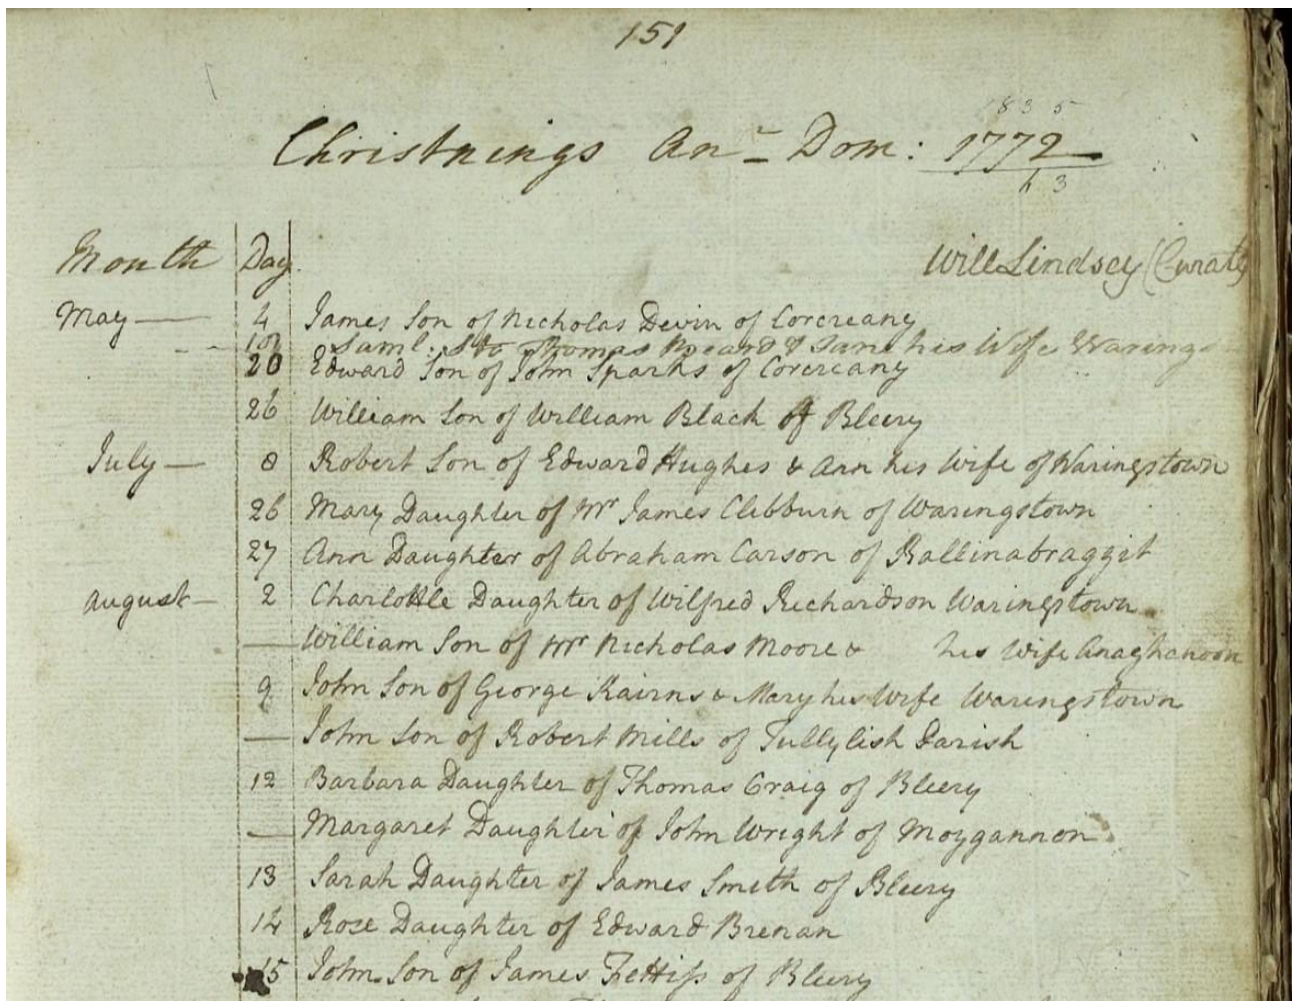 151
1835
Christnings An~ Dom: 1772
63
Month Day
Will Lindsey (Curate)
May — 4 James Son of Nicholas Devin of Corcreany
10 Saml. S to Thomas & Jane his Wife Waring
20 Edward Son of John Sparks of Corcreany
26 William Son of William Black of Bleery
July — 8 Robert Son of Edward Hughes & Ann his Wife of Waringstown
26 Mary Daughter of Mr James Clibburn of Waringstown
27 Ann Daughter of Abraham Carson of Ballinabraggit
August — 2 Charlotte Daughter of Wilfred Richardson Waringstown
— William Son of Mr Nicholas Moore & his Wife Anaghanoon
9 John Son of George Kairns & Mary his Wife Waringstown
— John Son of Robert Mills of Tullylish Parish
12 Barbara Daughter of Thomas Craig of Bleery
— Margaret Daughter of John Wright of Moygannon
13 Sarah Daughter of James Smith of Bleery
14 Rose Daughter of Edward Brenan
15 John Son of James Fettiss of Bleery